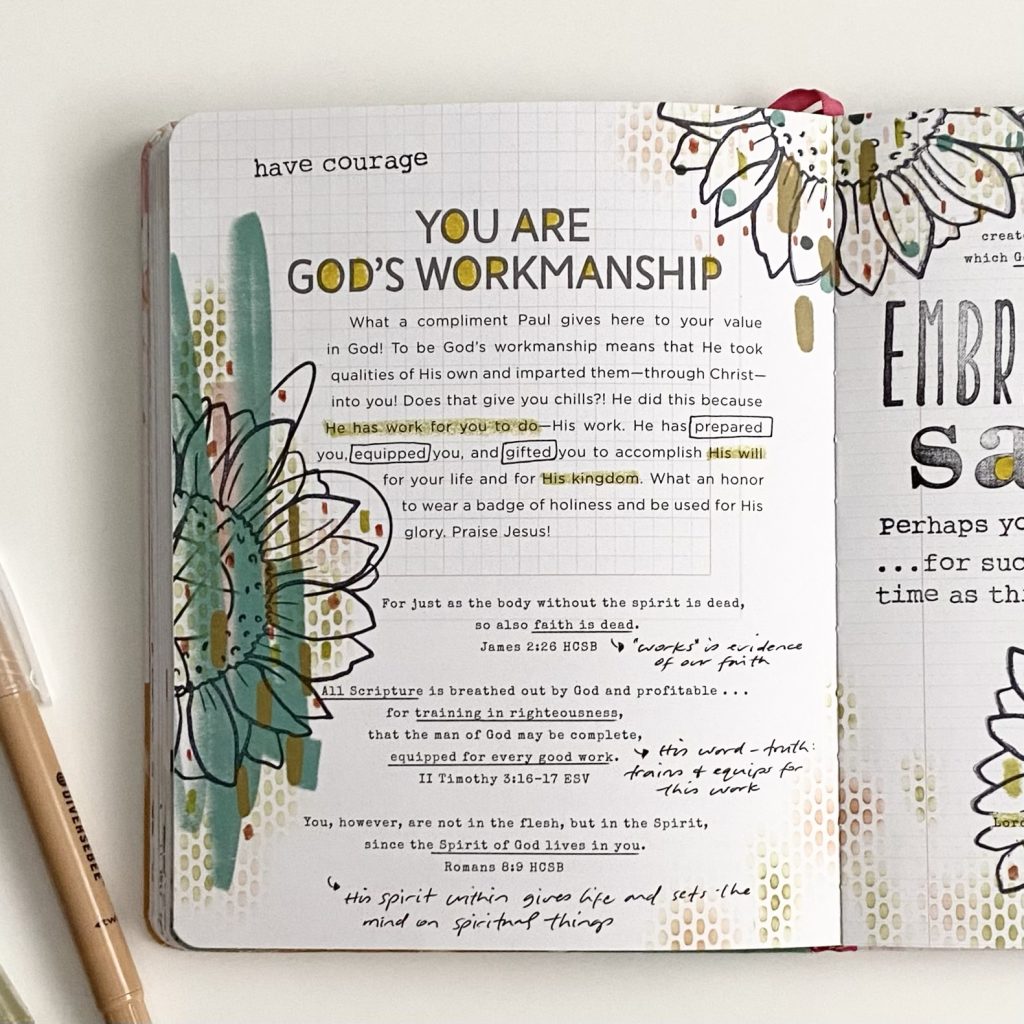 have courage
YOU ARE
GOD'S WORKMANSHIP
What a compliment Paul gives here to your value
in God! To be God's workmanship means that He took
qualities of His own and imparted them—through Christ—
into you! Does that give you chills?! He did this because
He has work for you to do—His work. He has prepared
you, equipped you, and gifted you to accomplish His will
for your life and for His kingdom. What an honor
to wear a badge of holiness and be used for His
glory. Praise Jesus!
For just as the body without the spirit is dead,
so also faith is dead.
James 2:26 HCSB
"works" is evidence
of our faith
All Scripture is breathed out by God and profitable ...
for training in righteousness,
that the man of God may be complete,
equipped for every good work.
II Timothy 3:16-17 ESV
His word - truth:
trains & equips for
this work
You, however, are not in the flesh, but in the Spirit,
since the Spirit of God lives in you.
Romans 8:9 HCSB
His spirit within gives life and sets the
mind on spiritual things
which
EMBR
sa
Perhaps yo
...for suc
time as thi
Lord
DIVERSEBEE